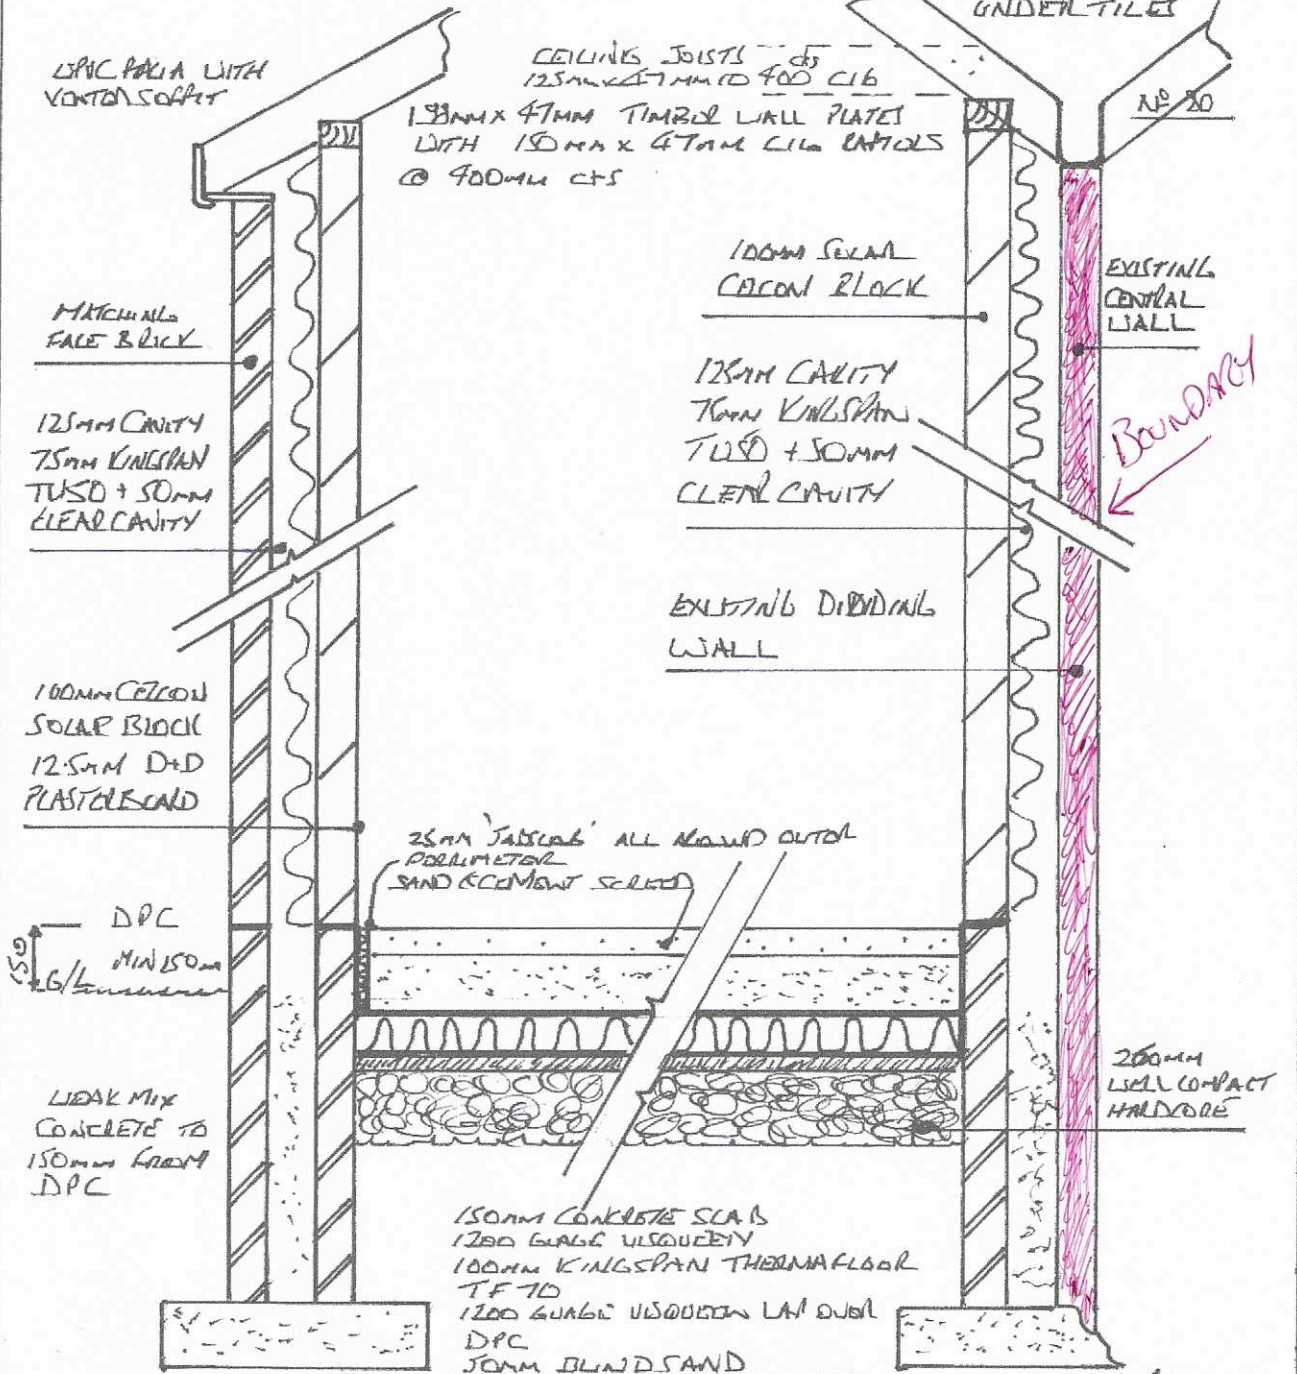 UNDER TILES
UPVC FACIA WITH
VENTED SOFFIT
CEILING JOISTS
125mm x 47mm TO 400 C16 cts
47MM TIMBER WALL PLATES
WITH 150MM x 47MM C16 RAFTERS
@ 400MM cts
No 80
100MM SOLAR
CELCON BLOCK
EXISTING
CENTRAL
WALL
MATCHING
FACE BRICK
BOUNDARY
125MM CAVITY
75MM KINGSPAN
TW50 + 50MM
CLEAR CAVITY
125MM CAVITY
75MM KINGSPAN
TW50 + 50MM
CLEAR CAVITY
EXISTING DIVIDING
WALL
100MM CELCON
SOLAR BLOCK
12.5MM D+D
PLASTERBOARD
25MM 'JABSLAB' ALL AROUND OUTER
PERRIMETER
SAND & CEMENT SCREED
DPC
150
MIN 150mm
G/L
WEAK MIX
CONCRETE TO
150mm FROM
DPC
200MM
WELL COMPACT
HARDCORE
150MM CONCRETE SLAB
1200 GUAGE VISQUEEN
100MM KINGSPAN THERMAFLOOR
TF70
1200 GUAGE VISQUEEN LAP OVER
DPC
50MM BLIND SAND